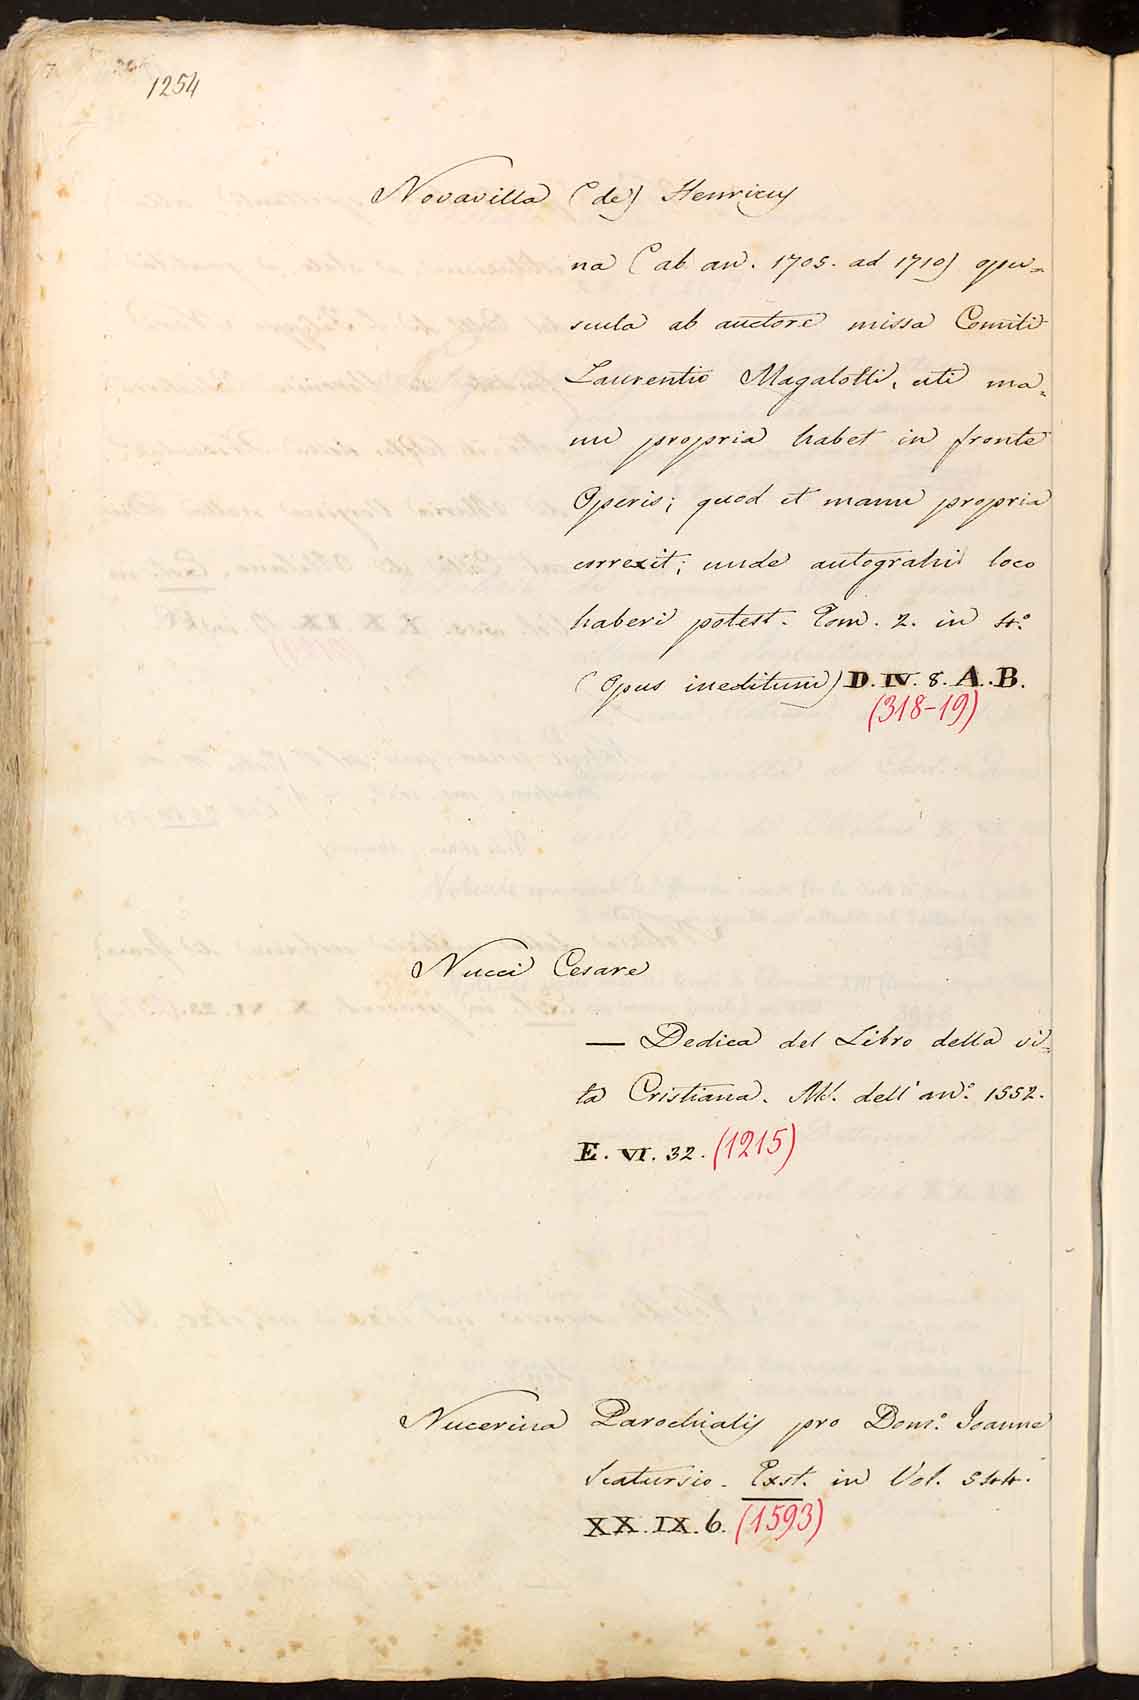 1254
Novavilla (de) Henricus
na (ab an. 1705. ad 1710) opu=
scula ab auctore missa Comiti
Laurentio Magalotti, uti ma=
nu propria habet in fronte
Operis; quod et manu propria
correxit; unde autograhi loco
haberi potest. Tom. 2. in 4.°
(Opus ineditum) D. IV. 8. A. B.
(318-19)
Nucci Cesare
— Dedica del Libro della vi=
ta Cristiana. Ms. dell' an.° 1552.
E. VI. 32. (1215)
Nucerina Parochialis pro Dom.° Joanne
Scatursio. Exst. in Vol. 544.
XX. IX. 6. (1593)